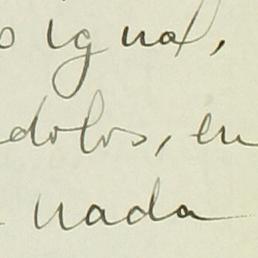 igual,
dolos, en
nada